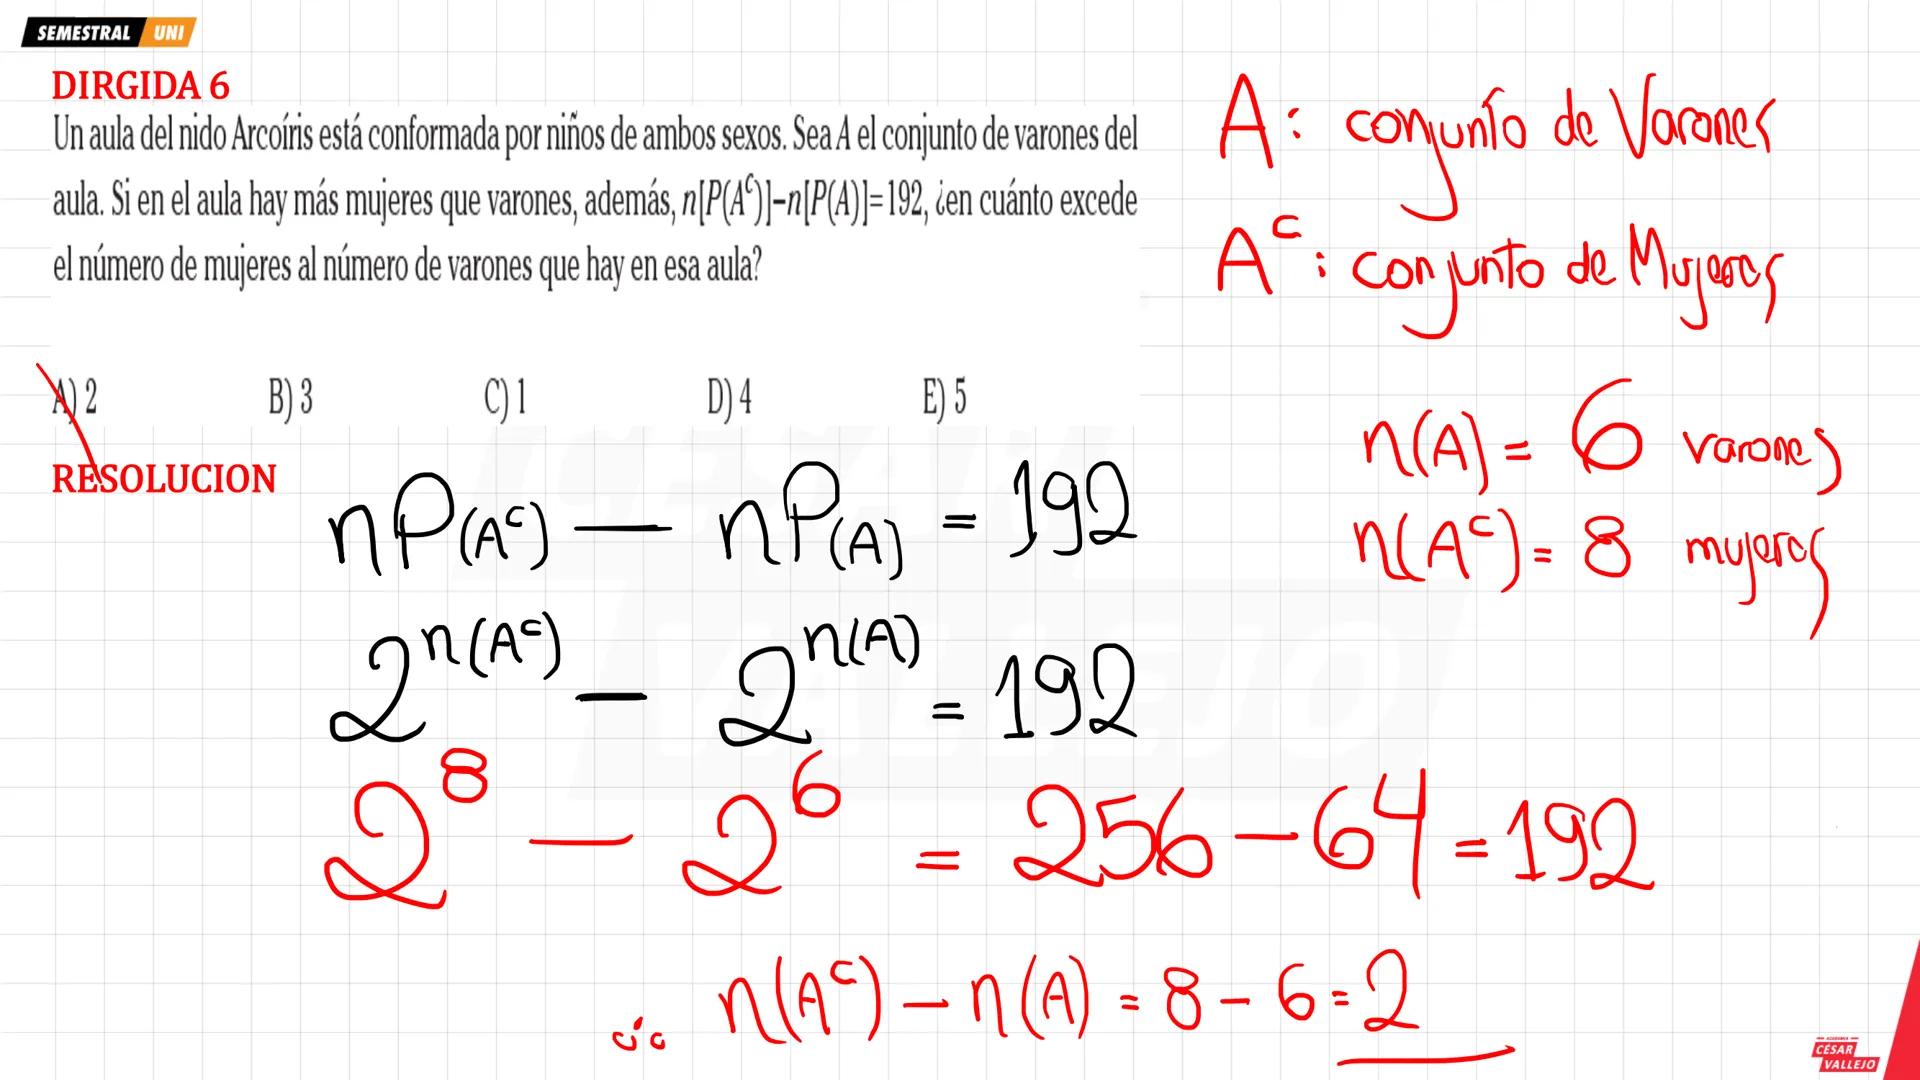 SEMESTRAL UNI
DIRGIDA 6
Un aula del nido Arcoíris está conformada por niños de ambos sexos. Sea A el conjunto de varones del
aula. Si en el aula hay más mujeres que varones, además, n[P(Aᶜ)]–n[P(A)]=192, ¿en cuánto excede
el número de mujeres al número de varones que hay en esa aula?
A) 2 B) 3 C) 1 D) 4 E) 5
RESOLUCION
A: conjunto de Varones
Aᶜ: conjunto de Mujeres
n(A) = 6 varones
n(Aᶜ) = 8 mujeres
nP(Aᶜ) — nP(A) = 192
2^n(Aᶜ) — 2^n(A) = 192
2⁸ — 2⁶ = 256 — 64 = 192
∴ n(Aᶜ) — n(A) = 8 – 6 = 2
ACADEMIA
CÉSAR
VALLEJO